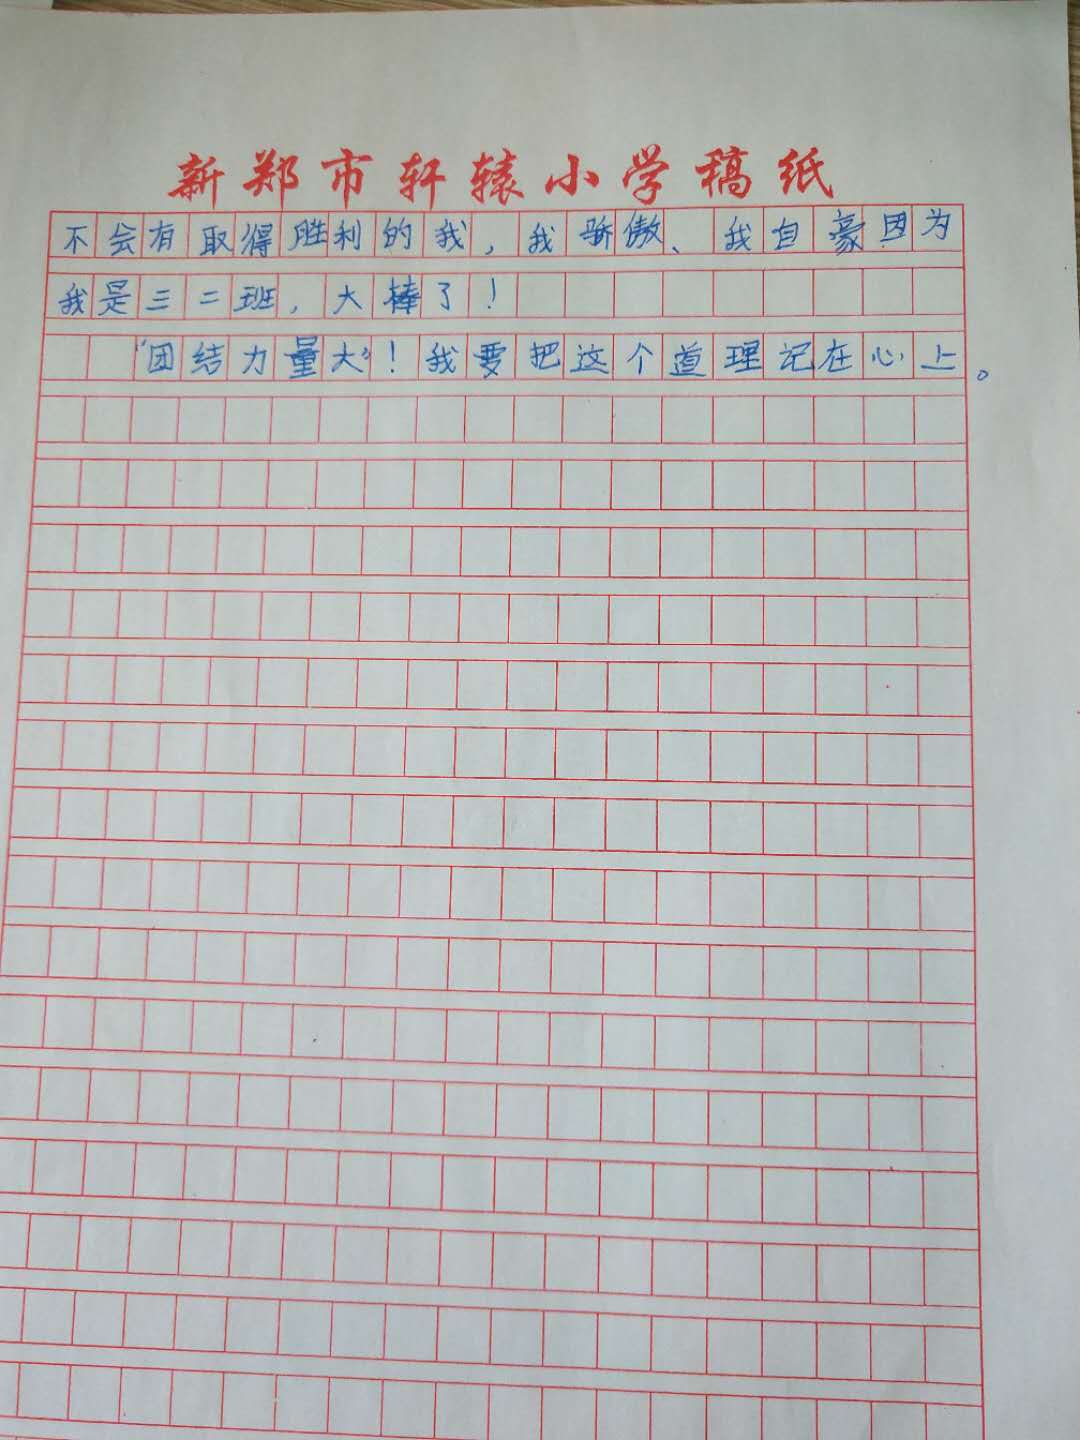 新郑市轩辕小学稿纸
不会有取得胜利的我，我骄傲、我自豪因为
我是三二班，大棒了！
“团结力量大”！我要把这个道理记在心上。